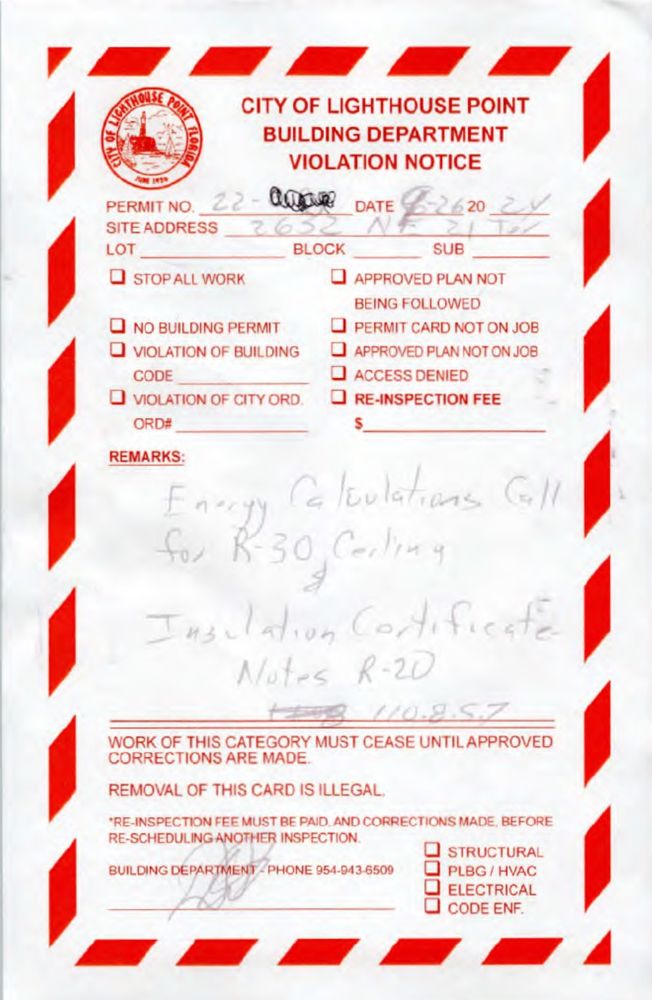 CITY OF LIGHTHOUSE POINT FLORIDA
JUNE 1956
CITY OF LIGHTHOUSE POINT
BUILDING DEPARTMENT
VIOLATION NOTICE
PERMIT NO. 22- DATE 9-26 20 24
SITE ADDRESS 2632 NE 21 Ter
LOT BLOCK SUB
☐ STOP ALL WORK ☐ APPROVED PLAN NOT
BEING FOLLOWED
☐ NO BUILDING PERMIT ☐ PERMIT CARD NOT ON JOB
☐ VIOLATION OF BUILDING ☐ APPROVED PLAN NOT ON JOB
CODE ☐ ACCESS DENIED
☐ VIOLATION OF CITY ORD. ☐ RE-INSPECTION FEE
ORD# $
REMARKS:
Energy Calculations Call
for R-30 Ceiling
&
Insulation Certificate
Notes R-20
110.8.5.7
WORK OF THIS CATEGORY MUST CEASE UNTIL APPROVED
CORRECTIONS ARE MADE.
REMOVAL OF THIS CARD IS ILLEGAL.
*RE-INSPECTION FEE MUST BE PAID, AND CORRECTIONS MADE, BEFORE
RE-SCHEDULING ANOTHER INSPECTION.
☐ STRUCTURAL
BUILDING DEPARTMENT - PHONE 954-943-6509 ☐ PLBG / HVAC
☐ ELECTRICAL
☐ CODE ENF.